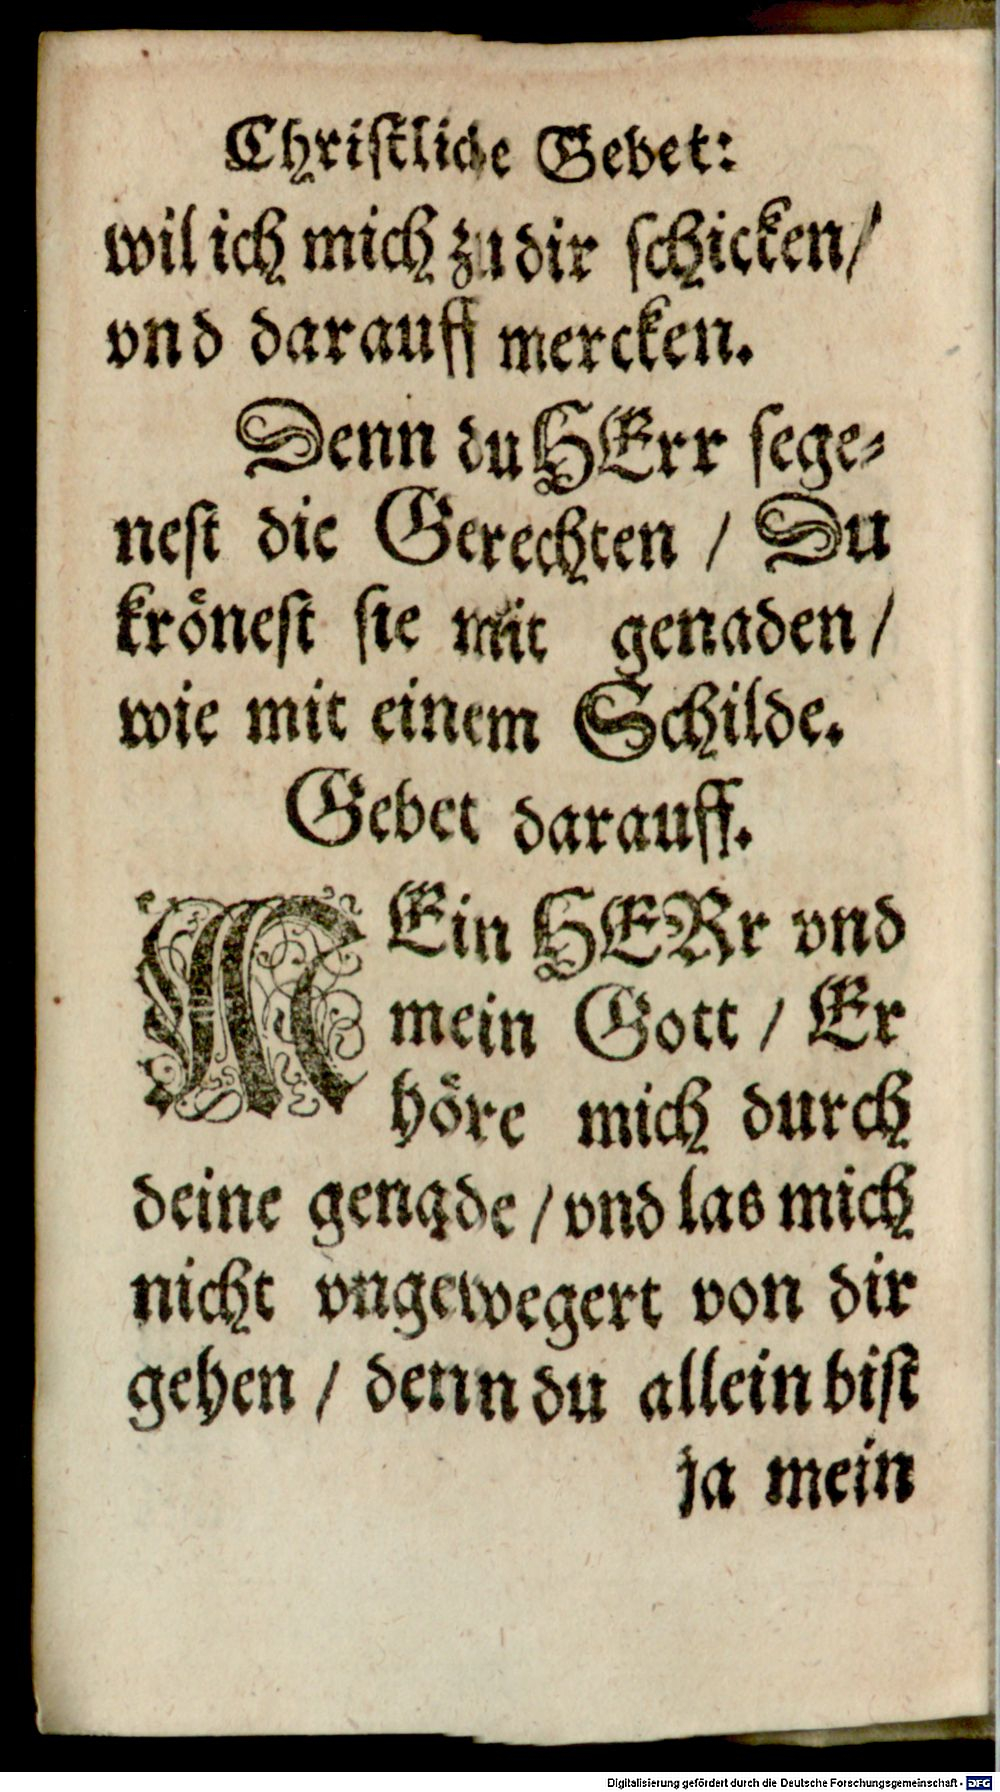 Chriſtliche Gebet:
wil ich mich zu dir ſchicken/
vnd darauff mercken.
Denn du HErr ſege⸗
neſt die Gerechten / Du
kröneſt ſie mit genaden/
wie mit einem Schilde.
Gebet darauff.
MEin HERr vnd
mein Gott / Er
höre mich durch
deine genade / vnd las mich
nicht vngewegert von dir
gehen / denn du allein biſt
ja mein
Digitalisierung gefördert durch die Deutsche Forschungsgemeinschaft - DFG